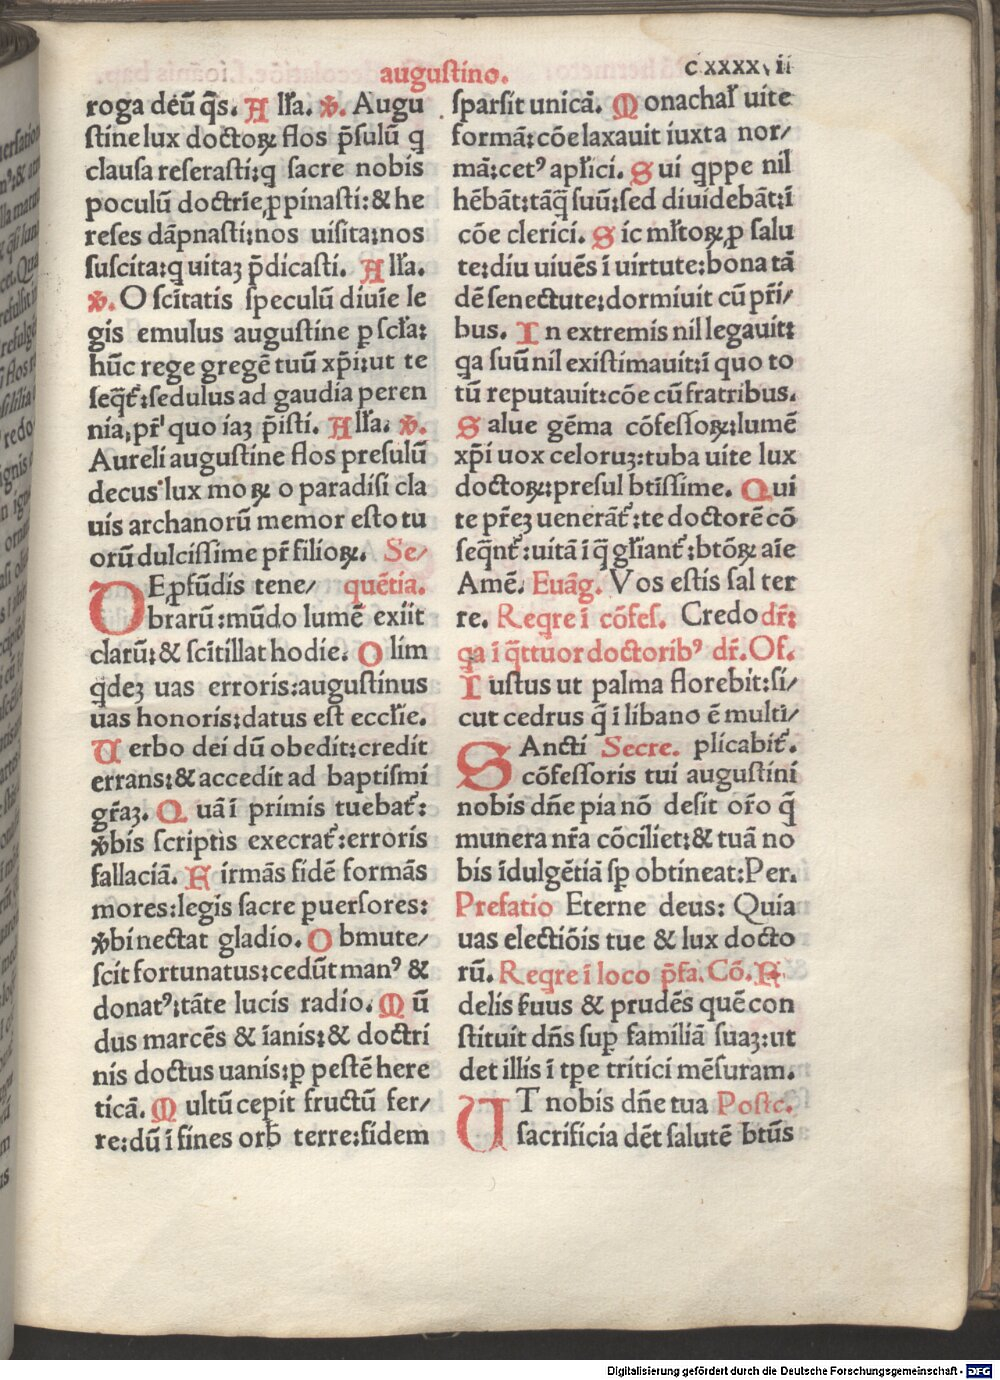 augustino.
cxxxxvii
roga deū q̄s. Alľa. ℣. Augu
stine lux doctoꝝ flos p̄sulū q
clausa reserasti: q sacre nobis
poculū doctrīe ꝓpinasti: & he
reses dāpnasti: nos uisita: nos
suscita: q uitaꝫ p̄dicasti. Alľa.
℣. O scītatis speculū diuīe le
gis emulus augustine ꝑ scľa:
hūc rege gregē tuū xp̄i: ut te
seq̄ť: sedulus ad gaudia peren
nia, pr̄ˡ quo iaꝫ p̄isti. Alľa. ℣.
Aureli augustine flos presulū
decus lux moꝝ o paradisi cla
uis archanorū memor esto tu
orū dulcissime pr̄ filioꝝ. Se/
DE ꝓfūdis tene/ quētia.
brarū: mūdo lumē exiit
clarū: & scītillat hodie. Olim
qdeꝫ uas erroris: augustinus
uas honoris: datus est eccľie.
Uerbo dei dū obedit: credit
errans: & accedit ad baptismi
gr̄aꝫ. Quā ī primis tuebať:
℣bis scriptis execrať: erroris
fallaciā. Firmās fidē formās
mores: legis sacre ꝑuersores:
℣bi nectat gladio. Obmute/
scit fortunatus: cedūt manꝰ &
donatꝰ: tāte lucis radio. Mū
dus marcēs & īanis: & doctri
nis doctus uanis: ꝑ pestē here
ticā. Multū cepit fructū fer/
re: dū ī fines orƀ terre: fidem
sparsit unicā. Monachał uite
formā: cōe laxauit iuxta nor/
mā: cetꝰ apľici. Sui qppe nil
hēbāt: tāq̄ suū: sed diuidebāt: ī
cōe clerici. Sic mľtoꝝ ꝓ salu
te: diu uiuēs ī uirtute: bona tā
dē senectute: dormiuit cū pr̄i/
bus. In extremis nil legauit:
qa suū nil existimauit: ī quo to
tū reputauit: cōe cū fratribus.
Salue gēma cōfessoꝝ: lumē
xp̄i uox celoruꝫ: tuba uite lux
doctoꝝ: presul btīssime. Qui
te pr̄eꝫ uenerāť: te doctorē cō
seq̄nť: uitā ī q̄ gľianť: btōꝝ aīe
Amē. Euāg. Vos estis sal ter
re. Reqre ī cōfes. Credo dr̄:
qa ī q̄ttuor doctoribꝰ dr̄. Of.
Iustus ut palma florebit: si/
cut cedrus q̄ ī libano ē multi/
SAncti Secre. plicabiť.
cōfessoris tui augustini
nobis dn̄e pia nō desit or̄o q̄
munera nr̄a cōciliet: & tuā no
bis īdulgētiā sꝑ obtineat: Per.
Prefatio Eterne deus: Quia
uas electiōis tue & lux docto
rū. Reqre ī loco p̄fa. Cō. Fi
delis ẜuus & prudēs quē con
stituit dn̄s suꝑ familiā suaꝫ: ut
det illis ī tꝑe tritici mēsuram.
UT nobis dn̄e tua Postc.
sacrificia dēt salutē btūs
Digitalisierung gefördert durch die Deutsche Forschungsgemeinschaft - DFG